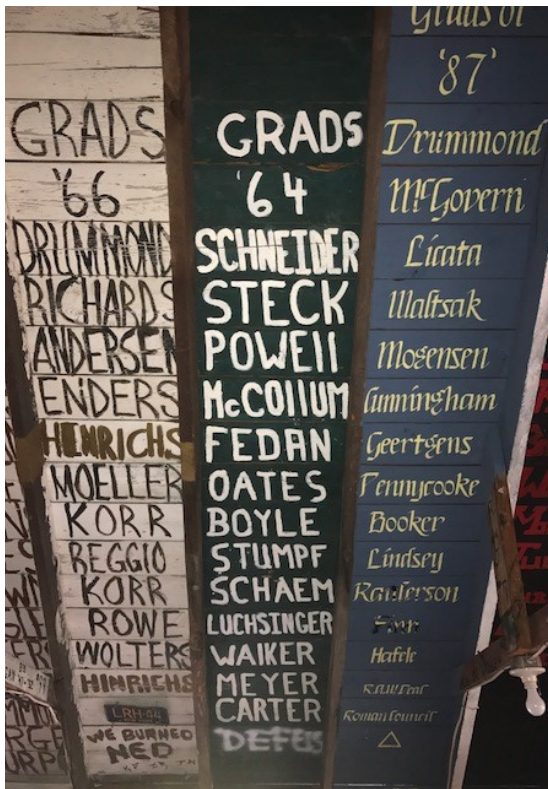 GRADS
'66
DRUMMOND
RICHARDS
ANDERSEN
ENDERS
HENRICHS
MOELLER
KORR
REGGIO
KORR
ROWE
WOLTERS
HINRICHS
LRH-44
WE BURNED
NED
GRADS
'64
SCHNEIDER
STECK
POWEll
McCOllUM
FEDAN
OATES
BOYLE
STUMPF
SCHAEM
LUCHSINGER
WAIKER
MEYER
CARTER
Grads of
'87'
Drummond
McGovern
Licata
Waltsak
Mogensen
Cunningham
Geertgens
Pennycooke
Booker
Lindsey
Randerson
Finn
Hafele
Roman Council